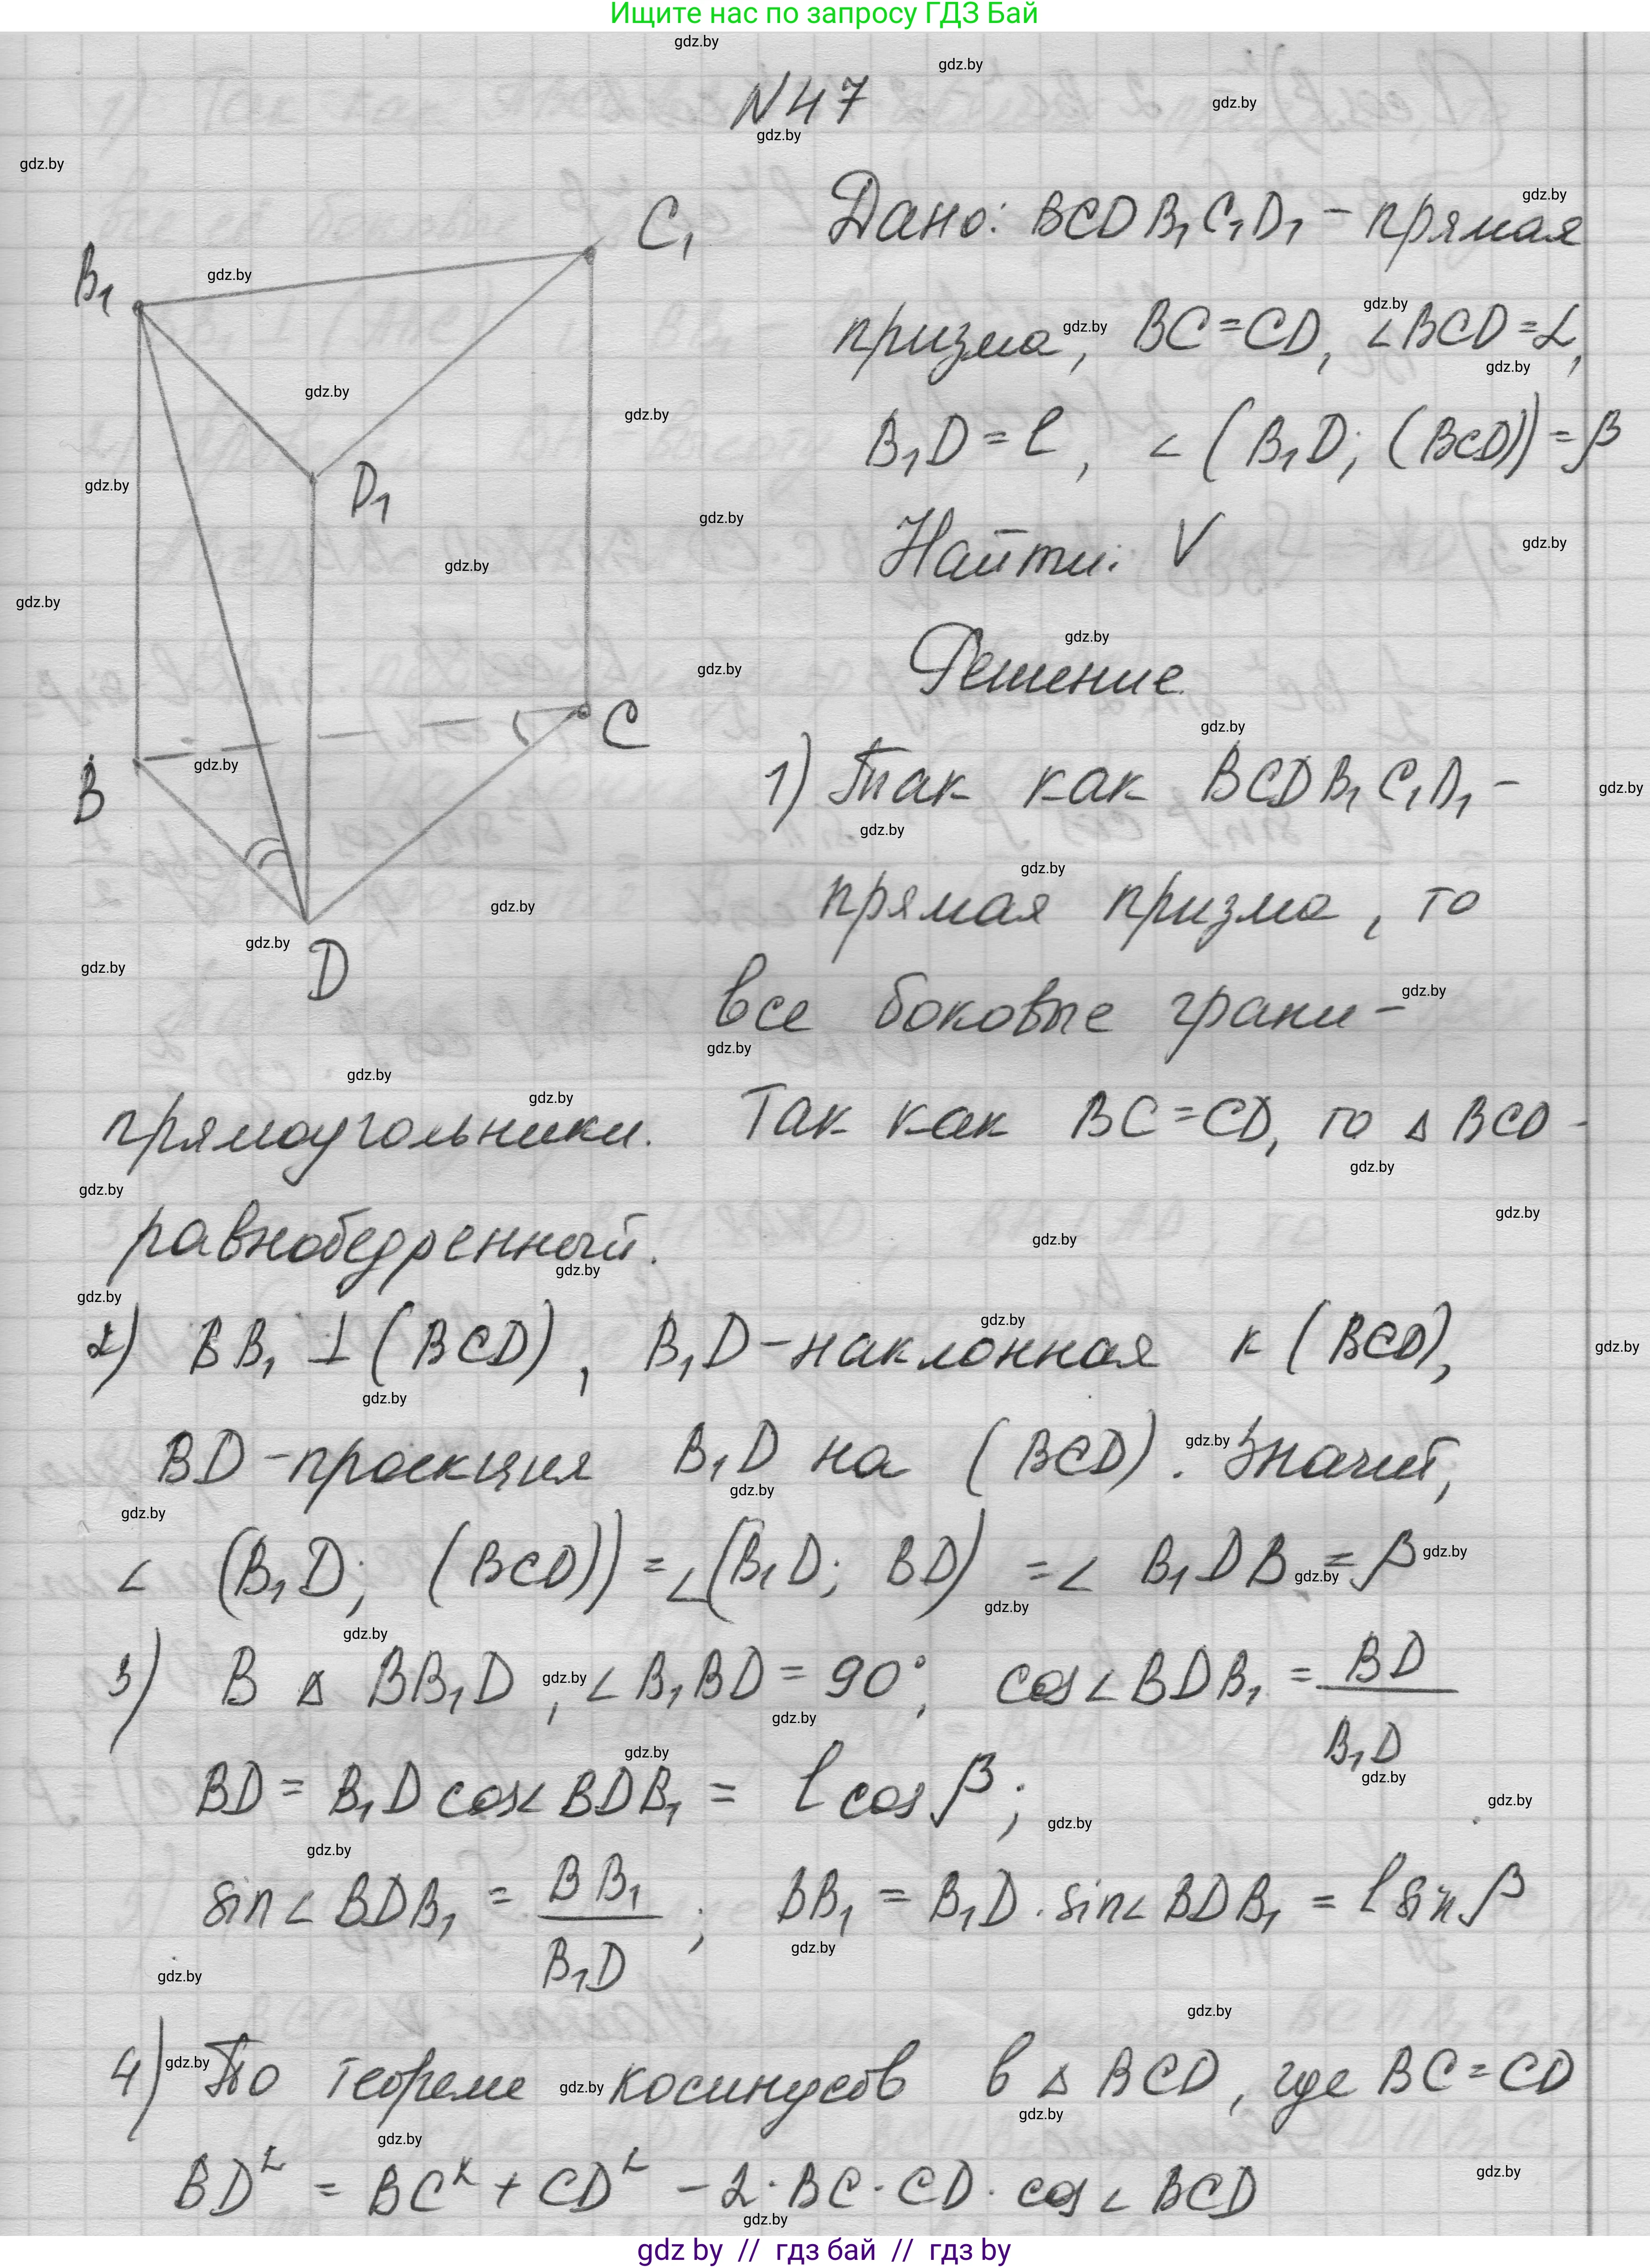 Ищите нас по запросу ГДЗ Бай
N47
B₁
C₁
D₁
B
C
D
Дано: BCDB₁C₁D₁ - прямая
призма, BC=CD, ∠BCD=α,
B₁D=l, ∠(B₁D; (BCD))=β
Найти: V
Решение
1) Так как BCDB₁C₁D₁ -
прямая призма, то
все боковые грани -
прямоугольники. Так как BC=CD, то △BCD -
равнобедренный.
2) BB₁ ⊥ (BCD), B₁D - наклонная к (BCD),
BD - проекция B₁D на (BCD). Значит,
∠(B₁D; (BCD)) = ∠(B₁D; BD) = ∠B₁DB = β
3) В △BB₁D, ∠B₁BD = 90°, cos∠BDB₁ = BD/B₁D
BD = B₁D cos∠BDB₁ = l cosβ;
sin∠BDB₁ = BB₁/B₁D; BB₁ = B₁D · sin∠BDB₁ = l sinβ
4) По теореме косинусов в △BCD, где BC=CD
BD² = BC² + CD² - 2·BC·CD·cos∠BCD
gdz by // гдз бай // гдз by
gdz.by